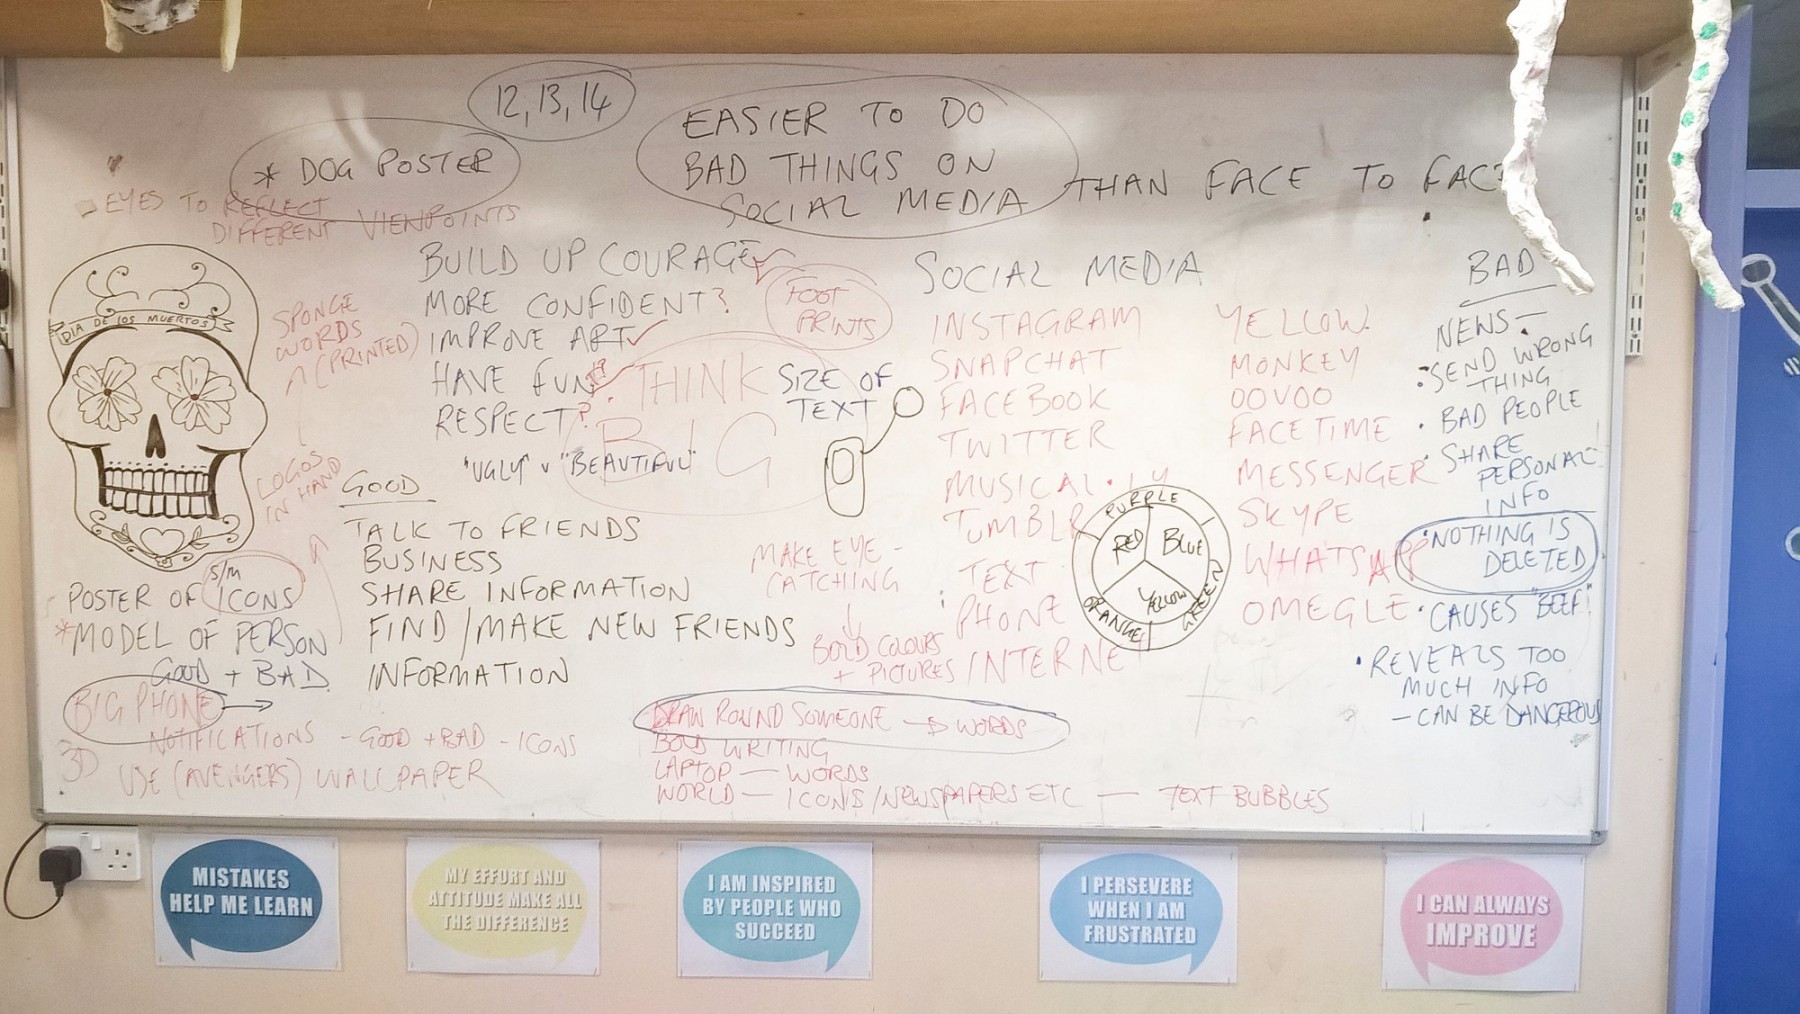 12, 13, 14
* DOG POSTER
EYES TO REFLECT
DIFFERENT VIEWPOINTS
EASIER TO DO
BAD THINGS ON
SOCIAL MEDIA THAN FACE TO FACE
DIA DE LOS MUERTOS
SPONGE
WORDS
(PRINTED)
LOGOS
IN HAND
BUILD UP COURAGE
MORE CONFIDENT?
IMPROVE ART
HAVE FUN
RESPECT?
"UGLY" v "BEAUTIFUL"
FOOT
PRINTS
THINK
BIG
SIZE OF
TEXT
GOOD
TALK TO FRIENDS
BUSINESS
SHARE INFORMATION
FIND/MAKE NEW FRIENDS
INFORMATION
MAKE EYE-
CATCHING
BOLD COLOURS
+ PICTURES
SOCIAL MEDIA
INSTAGRAM
SNAPCHAT
FACEBOOK
TWITTER
MUSICAL.LY
TUMBLR
TEXT
PHONE
INTERNET
YELLOW
MONKEY
OOVOO
FACETIME
MESSENGER
SKYPE
WHATSAPP
OMEGLE
PURPLE
RED
BLUE
YELLOW
ORANGE
GREEN
BAD
NEWS-
• SEND WRONG
THING
• BAD PEOPLE
• SHARE
PERSONAL
INFO
• NOTHING IS
DELETED
• CAUSES "BEEF"
• REVEALS TOO
MUCH INFO
- CAN BE DANGEROUS
S/M
POSTER OF ICONS
*MODEL OF PERSON
GOOD + BAD
BIG PHONE →
3D
NOTIFICATIONS - GOOD + BAD - ICONS
USE (AVENGERS) WALLPAPER
DRAW ROUND SOMEONE → WORDS
BOLD WRITING
LAPTOP - WORDS
WORLD - ICONS/NEWSPAPERS ETC - TEXT BUBBLES
MISTAKES
HELP ME LEARN
MY EFFORT AND
ATTITUDE MAKE ALL
THE DIFFERENCE
I AM INSPIRED
BY PEOPLE WHO
SUCCEED
I PERSEVERE
WHEN I AM
FRUSTRATED
I CAN ALWAYS
IMPROVE